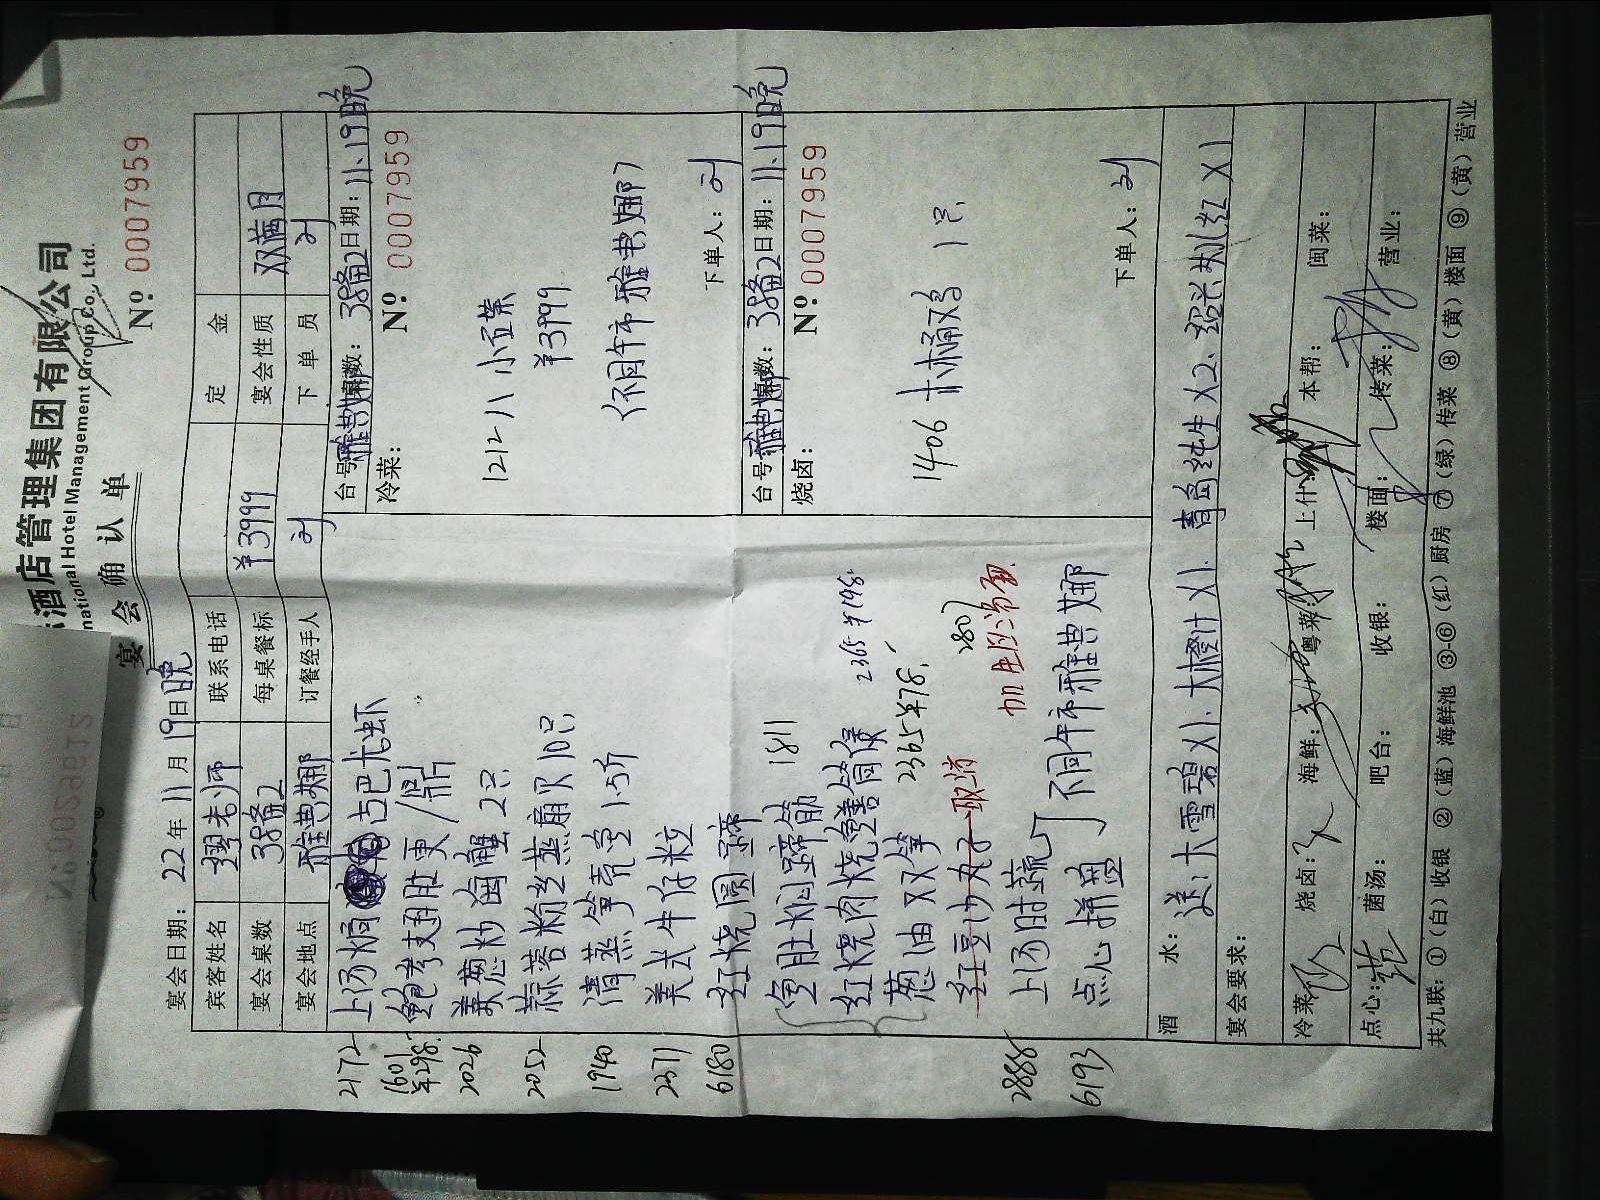 酒店管理集团有限公司
national Hotel Management Group Co., Ltd.
宴会确认单
№ 0007959
宴会日期: 22年11月19日晚
宾客姓名 穆老师 联系电话 定金
宴会桌数 38备2 每桌餐标 ¥3999 宴会性质 双满月
宴会地点 雅典娜 订餐经手人 刘 下单员 刘
2172 上汤焗 古巴龙虾
1601 ¥298.
2026 姜葱炒 蟹 2只
2052 蒜蓉粉丝蒸扇贝 10只
1940 清蒸笋壳鱼 1.5斤
2371 美式牛仔粒
6180 红烧圆蹄
鱼肚 蹄筋 1811
红烧肉烧鳝筒 2365 ¥198.
葱油双笋 2365 ¥78.
红豆沙丸子 取消 280
加
2888 上汤时蔬
6193 点心拼盘
不同午市雅典娜
台号 雅典娜 桌数: 38备2 日期: 11.19晚
冷菜: № 0007959
1212 八小 菜
¥3999
(不同午市雅典娜)
下单人: 刘
台号 雅典娜 桌数: 38备2 日期: 11.19晚
烧卤: № 0007959
1406 鸡 1只
下单人: 刘
酒水: 送: 大雪碧X1. 大橙汁X1. 青岛纯生X2. 绍兴 红X1
宴会要求:
冷菜: 烧卤: 海鲜: 粤菜: 上什: 本帮: 闽菜:
点心: 菌汤: 吧台: 收银: 楼面: 传菜: 营业:
共九联: ①(白)收银 ②(蓝)海鲜池 ③-⑥(红)厨房 ⑦(绿)传菜 ⑧(黄)楼面 ⑨(黄)营业